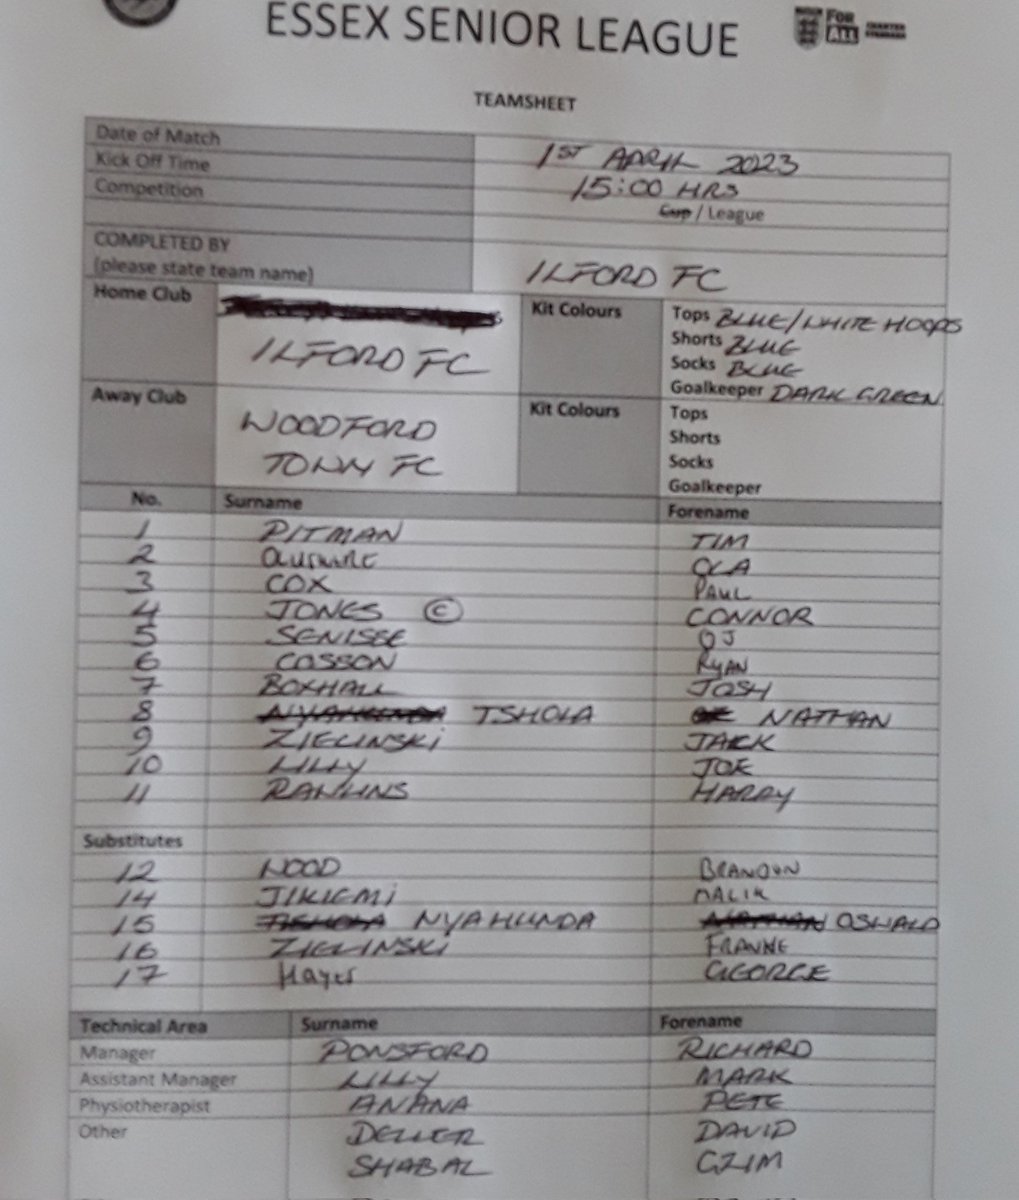 ESSEX SENIOR LEAGUE
FOR ALL
TEAMSHEET
Date of Match 1ST APRIL 2023
Kick Off Time 15:00 HRS
Competition Cup / League
COMPLETED BY
(please state team name) ILFORD FC
Home Club ILFORD FC Kit Colours Tops BLUE/WHITE HOOPS
Shorts BLUE
Socks BLUE
Goalkeeper DARK GREEN
Away Club WOODFORD TOWN FC Kit Colours Tops
Shorts
Socks
Goalkeeper
No. Surname Forename
1 PITMAN TIM
2 OLA
3 COX PAUL
4 JONES © CONNOR
5 SENISSE OJ
6 COSSON RYAN
7 BOXHALL JOSH
8 TSHOLA NATHAN
9 ZIELINSKI JACK
10 LILLY JOE
11 RAWLINS HARRY
Substitutes
12 WOOD BRANDON
14 JIKIEMI MALIK
15 TISHOLA NYAHUNDA NATHAN OSWALD
16 ZIELINSKI
17 Hayes GEORGE
Technical Area Surname Forename
Manager PONSFORD RICHARD
Assistant Manager LILLY MARK
Physiotherapist ANANA PETE
Other DELLER DAVID
SHABAL GZIM